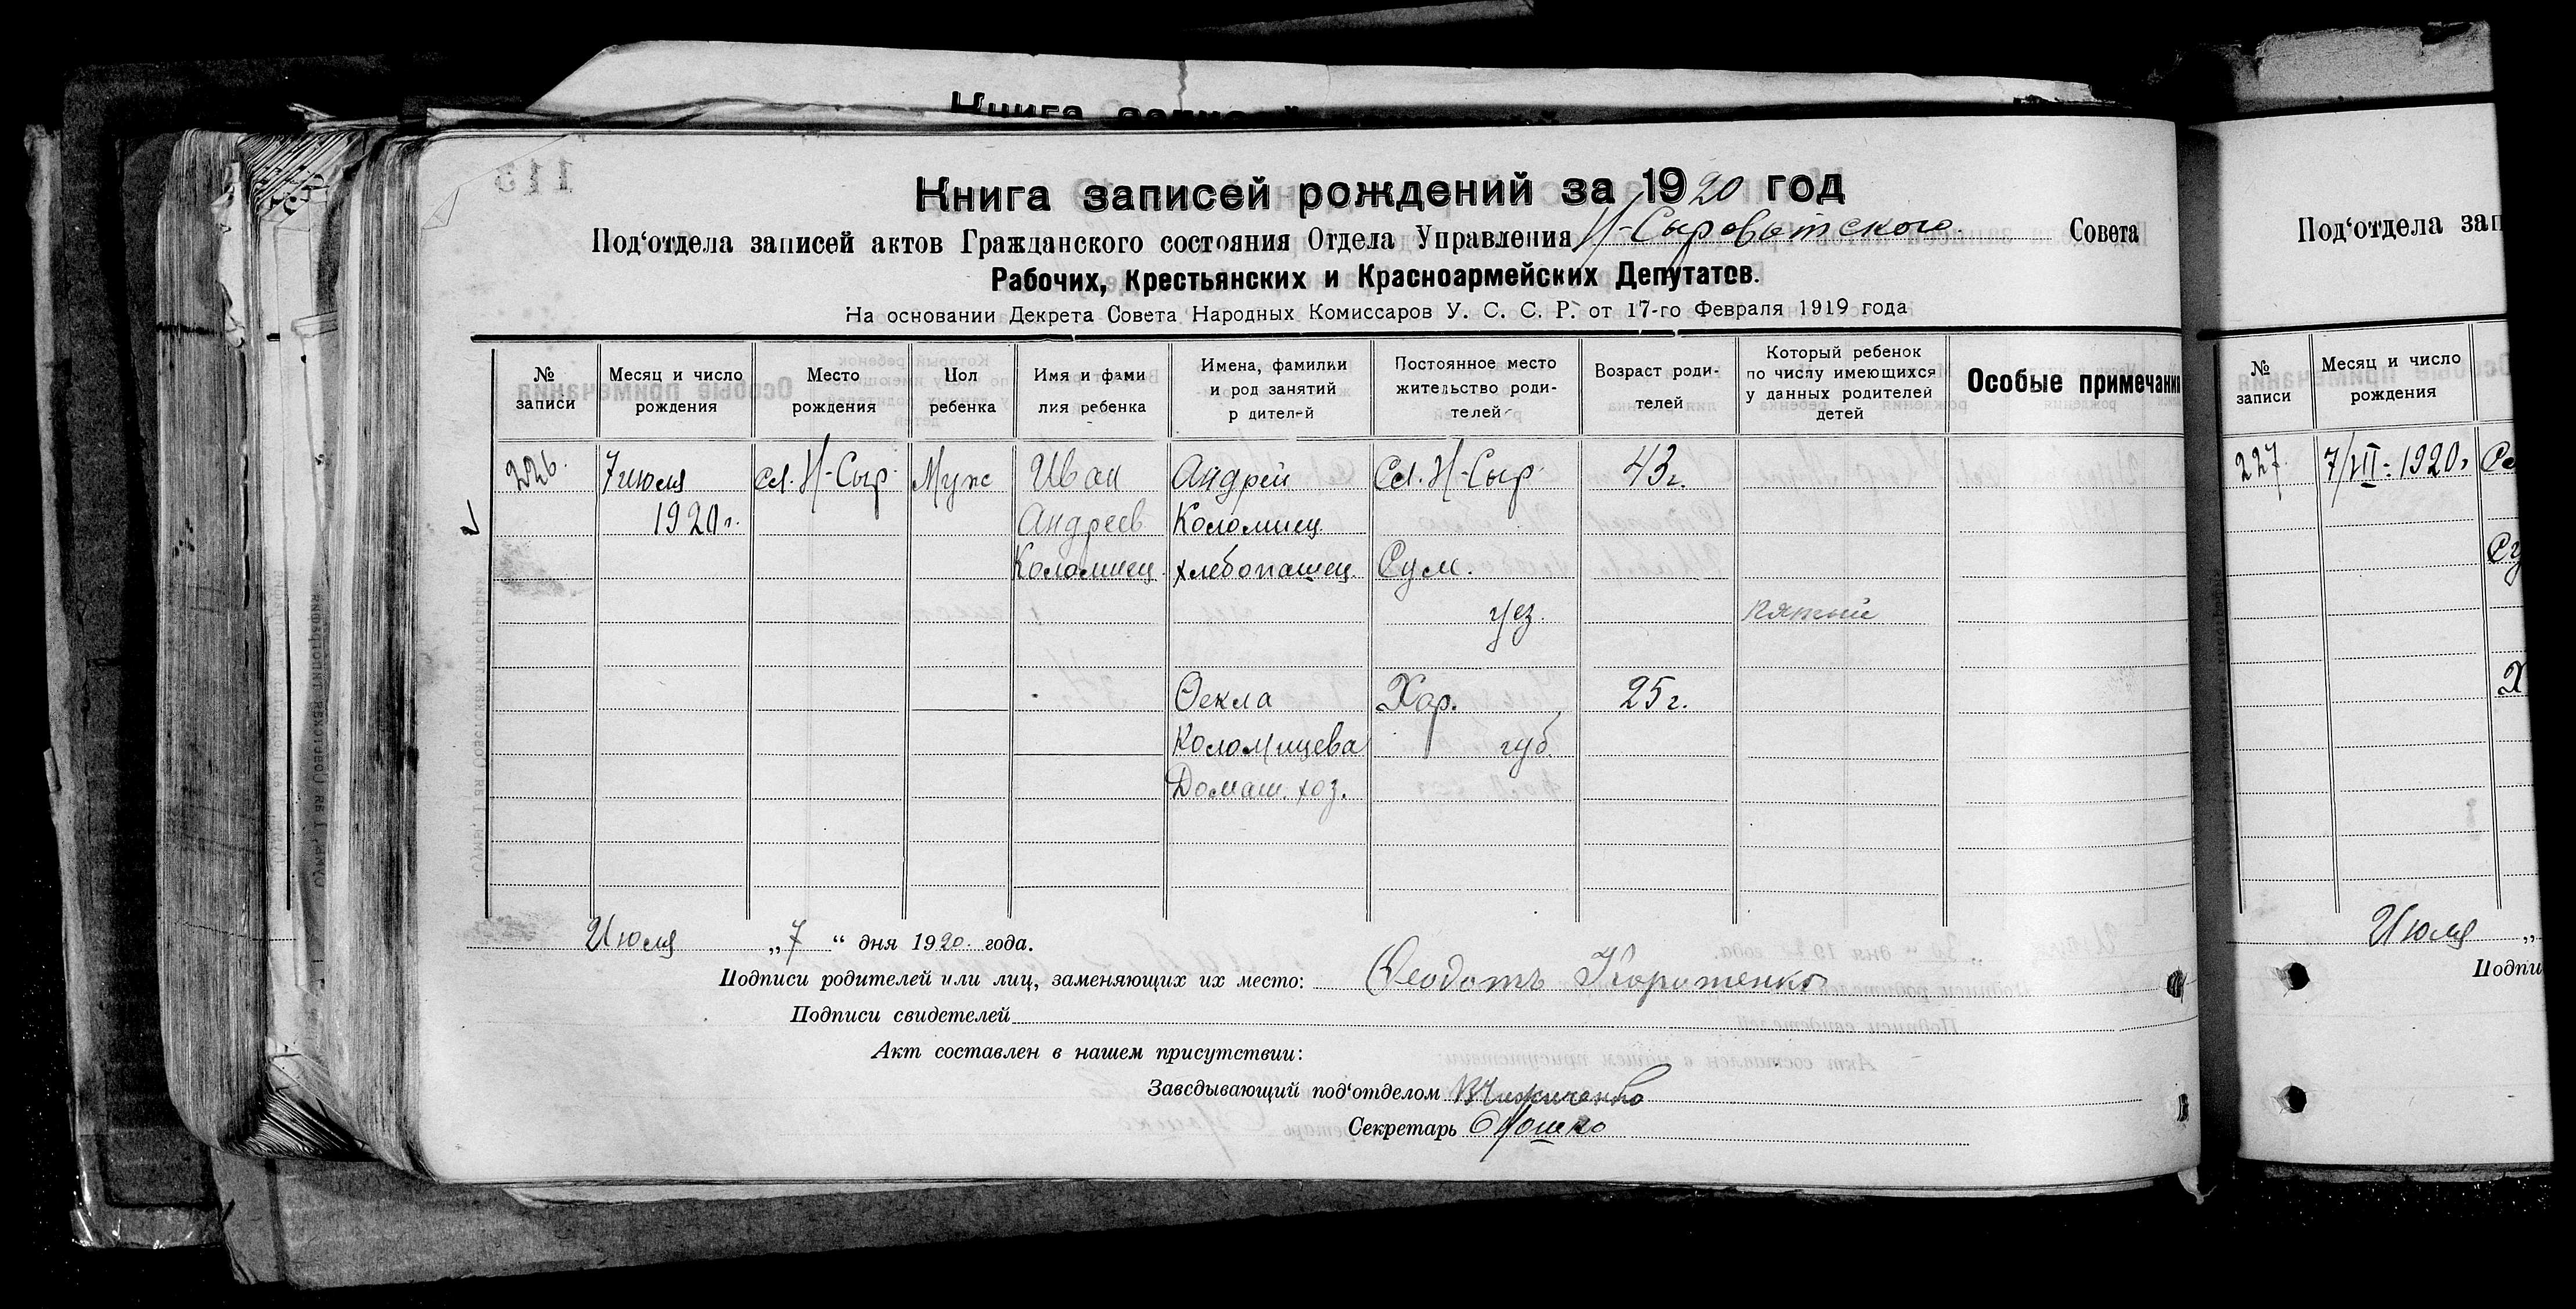 Книга записей рождений за 1920 год
Под‘отдела записей актов Гражданского состояния Отдела Управления Н-Сыроватского Совета
Рабочих, Крестьянских и Красноармейских Депутатов.
На основании Декрета Совета Народных Комиссаров У. С. С. Р. от 17-го Февраля 1919 года
№ записи
Месяц и число рождения
Место рождения
Пол ребенка
Имя и фами лия ребенка
Имена, фамилии и род занятий р дителей
Постоянное место жительство роди- телей
Возраст роди- телей
Который ребенок по числу имеющихся у данных родителей детей
Особые примечани
226. 7 июля сл. Н-Сыр. Муж Иван Андрей Сл. Н-Сыр. 43 г.
1920 г. Андреев Коломиец
Коломиец хлебопашец Сум.
уез. пятый
Ѳекла Хар. 25 г.
Коломицева губ.
Домаш. хоз.
Июля „7“ дня 1920. года.
Подписи родителей или лиц, заменяющих их место: Ѳеодотъ
Подписи свидетелей
Акт составлен в нашем присутствии:
Заведывающий под‘отделом
Секретарь
Под‘отдела зап
№ записи
Месяц и число рождения
227. 7/VII - 1920 г
Июля „
Подпи
113
Книга